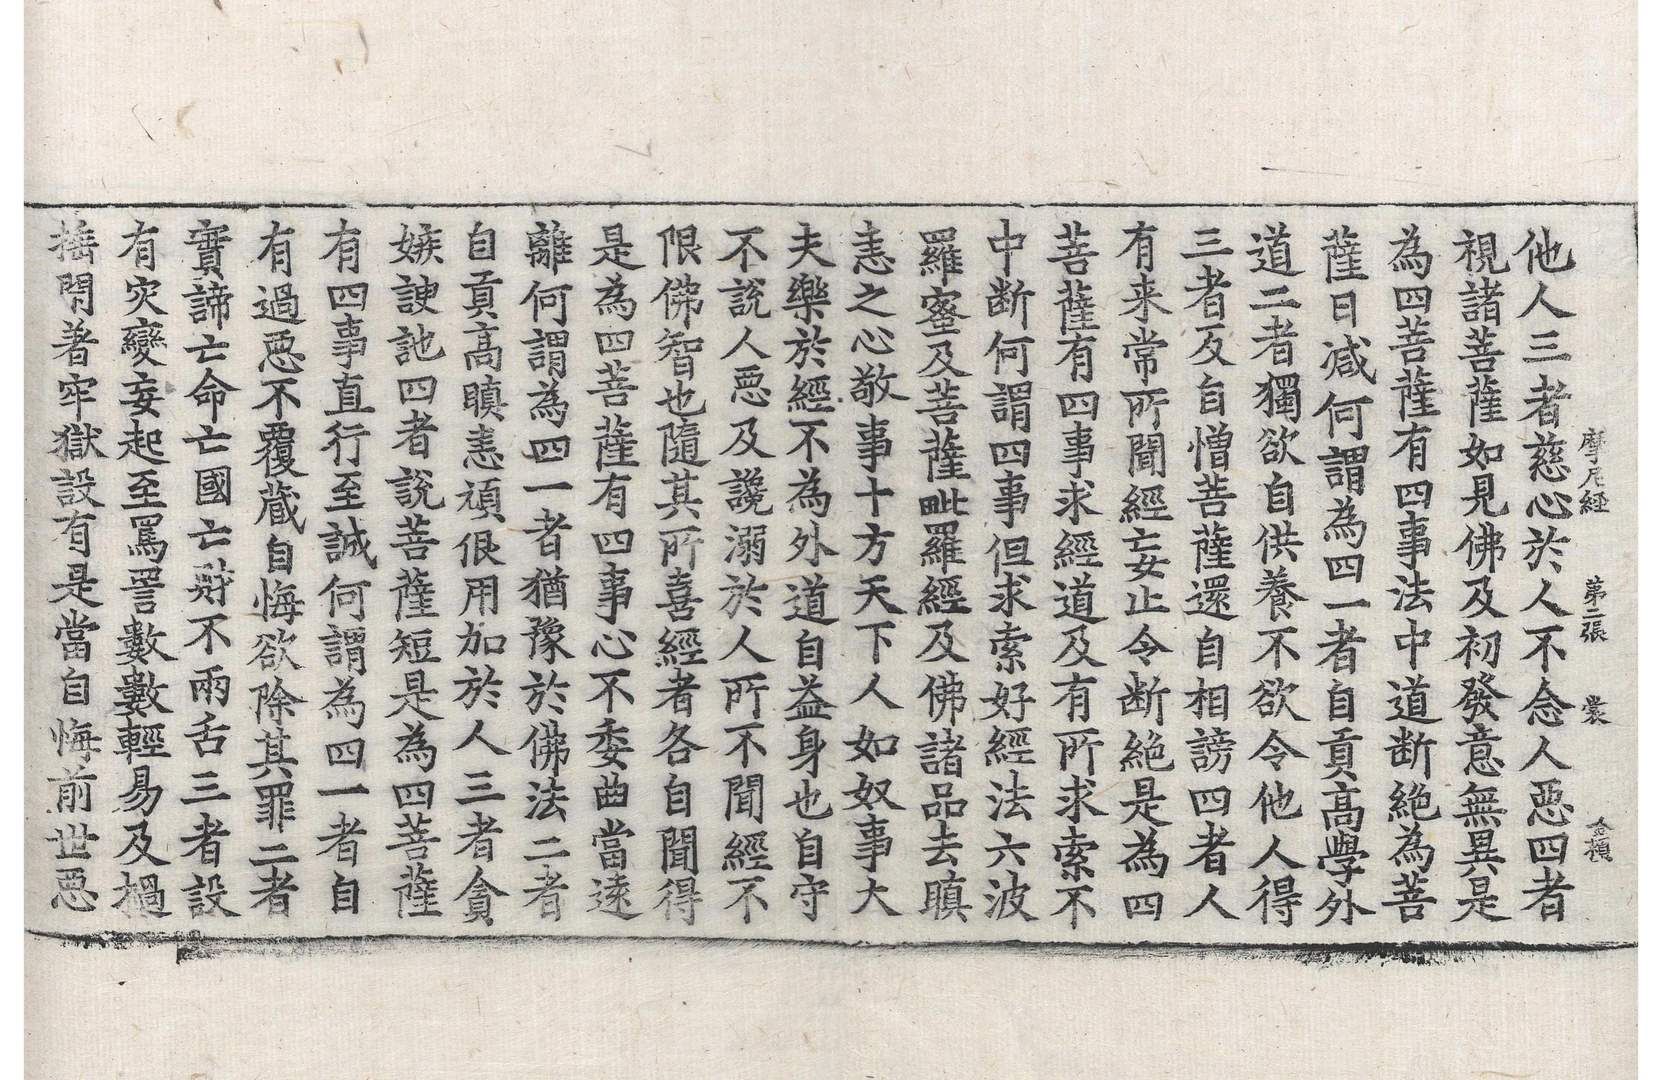 摩尼經 第二張 裳 金禎
他人三者慈心於人不念人惡四者
視諸菩薩如見佛及初發意無異是
為四菩薩有四事法中道断絶為菩
薩日減何謂為四一者自貢高學外
道二者獨欲自供養不欲令他人得
三者反自憎菩薩還自相謗四者人
有来常所聞經妄止令断絶是為四
菩薩有四事求經道及有所求索不
中断何謂四事但求索好經法六波
羅蜜及菩薩毗羅經及佛諸品去瞋
恚之心敬事十方天下人如奴事大
夫樂於經不為外道自益身也自守
不說人惡及讒溺於人所不聞經不
限佛智也隨其所喜經者各自聞得
是為四菩薩有四事心不委曲當遠
離何謂為四一者猶豫於佛法二者
自貢高瞋恚頑佷用加於人三者貪
嫉諛訑四者說菩薩短是為四菩薩
有四事直行至誠何謂為四一者自
有過惡不覆蔵自悔欲除其罪二者
實諦亡命亡國亡財不兩舌三者設
有灾變妄起至罵詈數數輕易及撾
捶閇著牢獄設有是當自悔前世惡